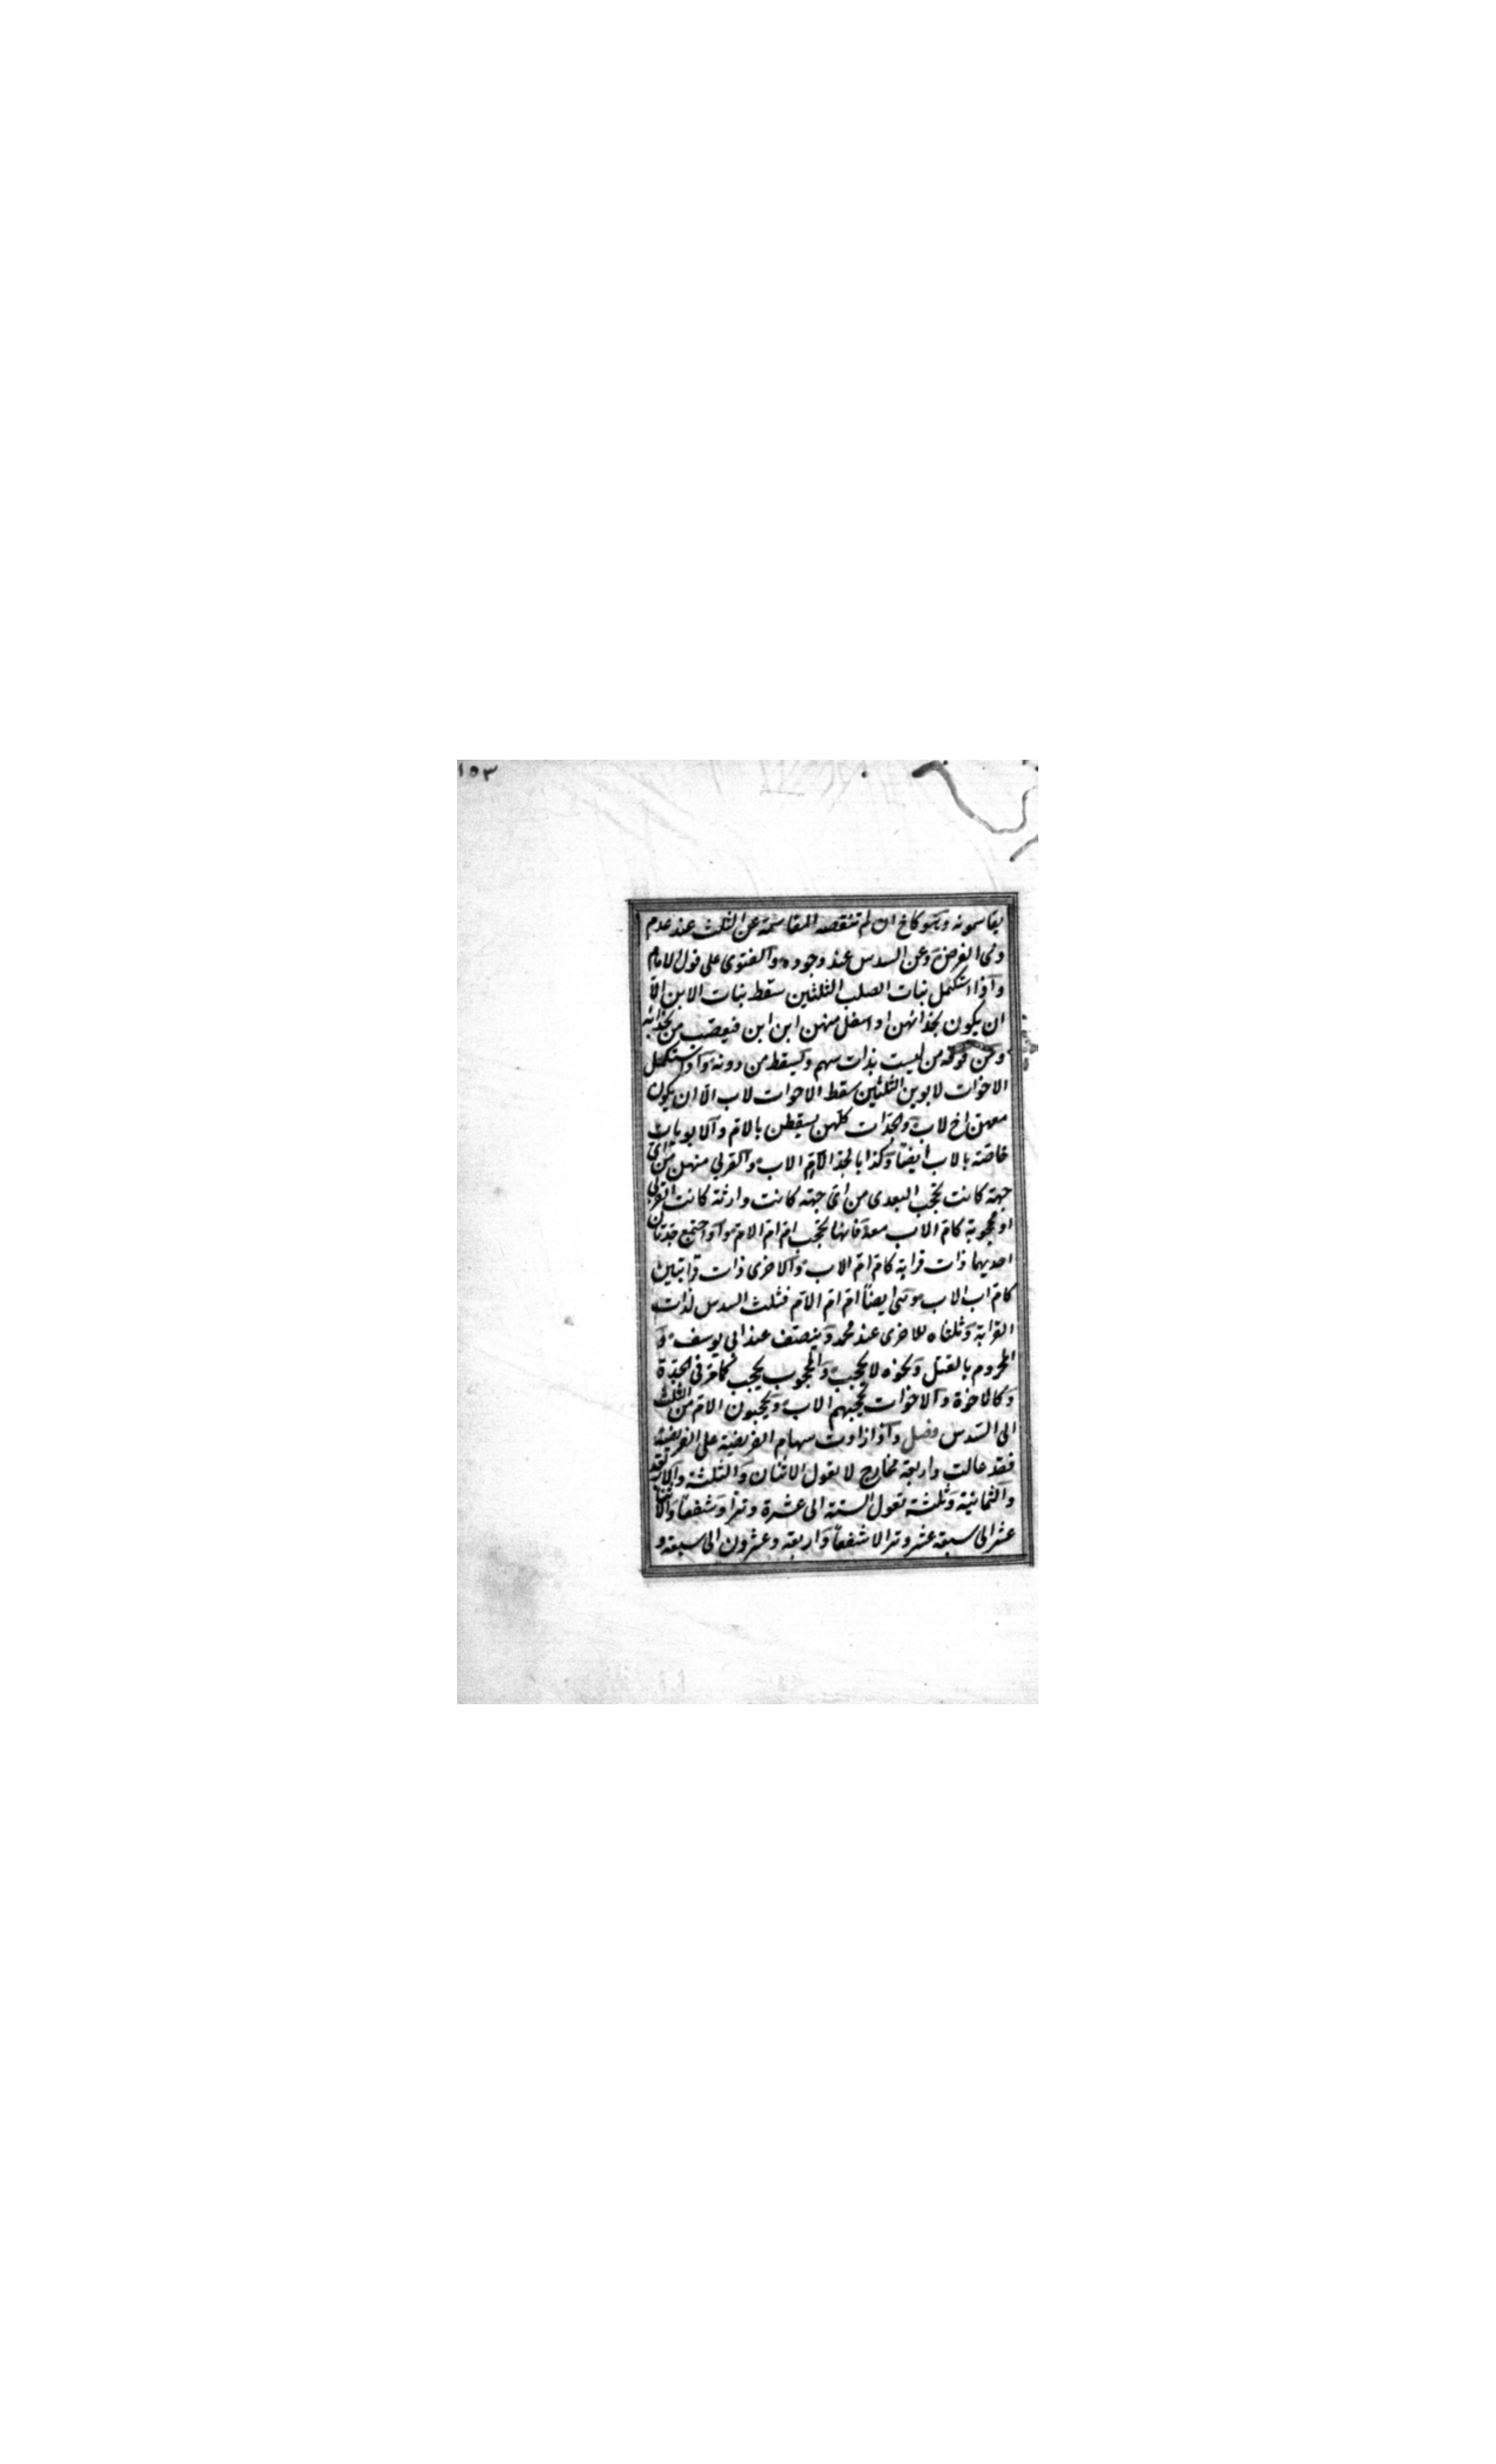 ١٥٣
يقاسمونه وهو كاخ ان لم تنقصه المقاسمة عن الثلث عند عدم
ذى الفرض وعن السدس عند وجوده والفتوى على قول الامام
واذا استكمل بنات الصلب الثلثين سقط بنات الابن الا
ان يكون بحذائهن او اسفل منهن ابن ابن فيعصب من بحذائه
ومن فوقه من ليست بذات سهم ويسقط من دونه واذا استكمل
الاخوات لابوين الثلثين سقط الاخوات لاب الا ان يكون
معهن اخ لاب والجدات كلهن يسقطن بالام والابويات
خاصة بالاب ايضا وكذا بالجد الا ام الاب والقربى منهن من اى
جهة كانت تحجب البعدى من اى جهة كانت وارثة كانت القربى
او محجوبة كام الاب معه فانها تحجب ام ام الام واذا اجتمع جدتان
احديهما ذات قرابة كام ام الاب والاخرى ذات قرابتين
كام اب الاب وهى ايضا ام ام الام فثلث السدس لذات
القرابة وثلثاه للاخرى عند محمد وينصف عند ابى يوسف و
المحروم بالقتل ونحوه لا يحجب والمحجوب يحجب كما مر فى الجدة
وكالاخوة والاخوات يحجبهم الاب ويحجبون الام من الثلث
الى السدس فصل واذا زادت سهام الفريضة على الفريضة
فقد عالت واربعة مخارج لا تعول الاثنان والثلثة والاربعة
والثمانية وثلثة تعول الستة الى عشرة وترا وشفعا والاثنا
عشر الى سبعة عشر وترا لا شفعا واربعة وعشرون الى سبعة و